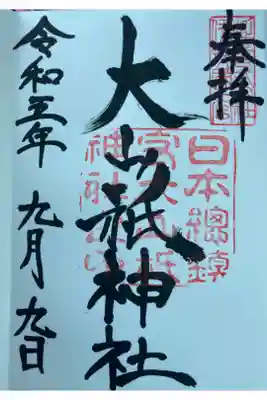 奉拝
大山祇神社
日本總鎮
守大山祇
神社之印
令和五年 九月 九日